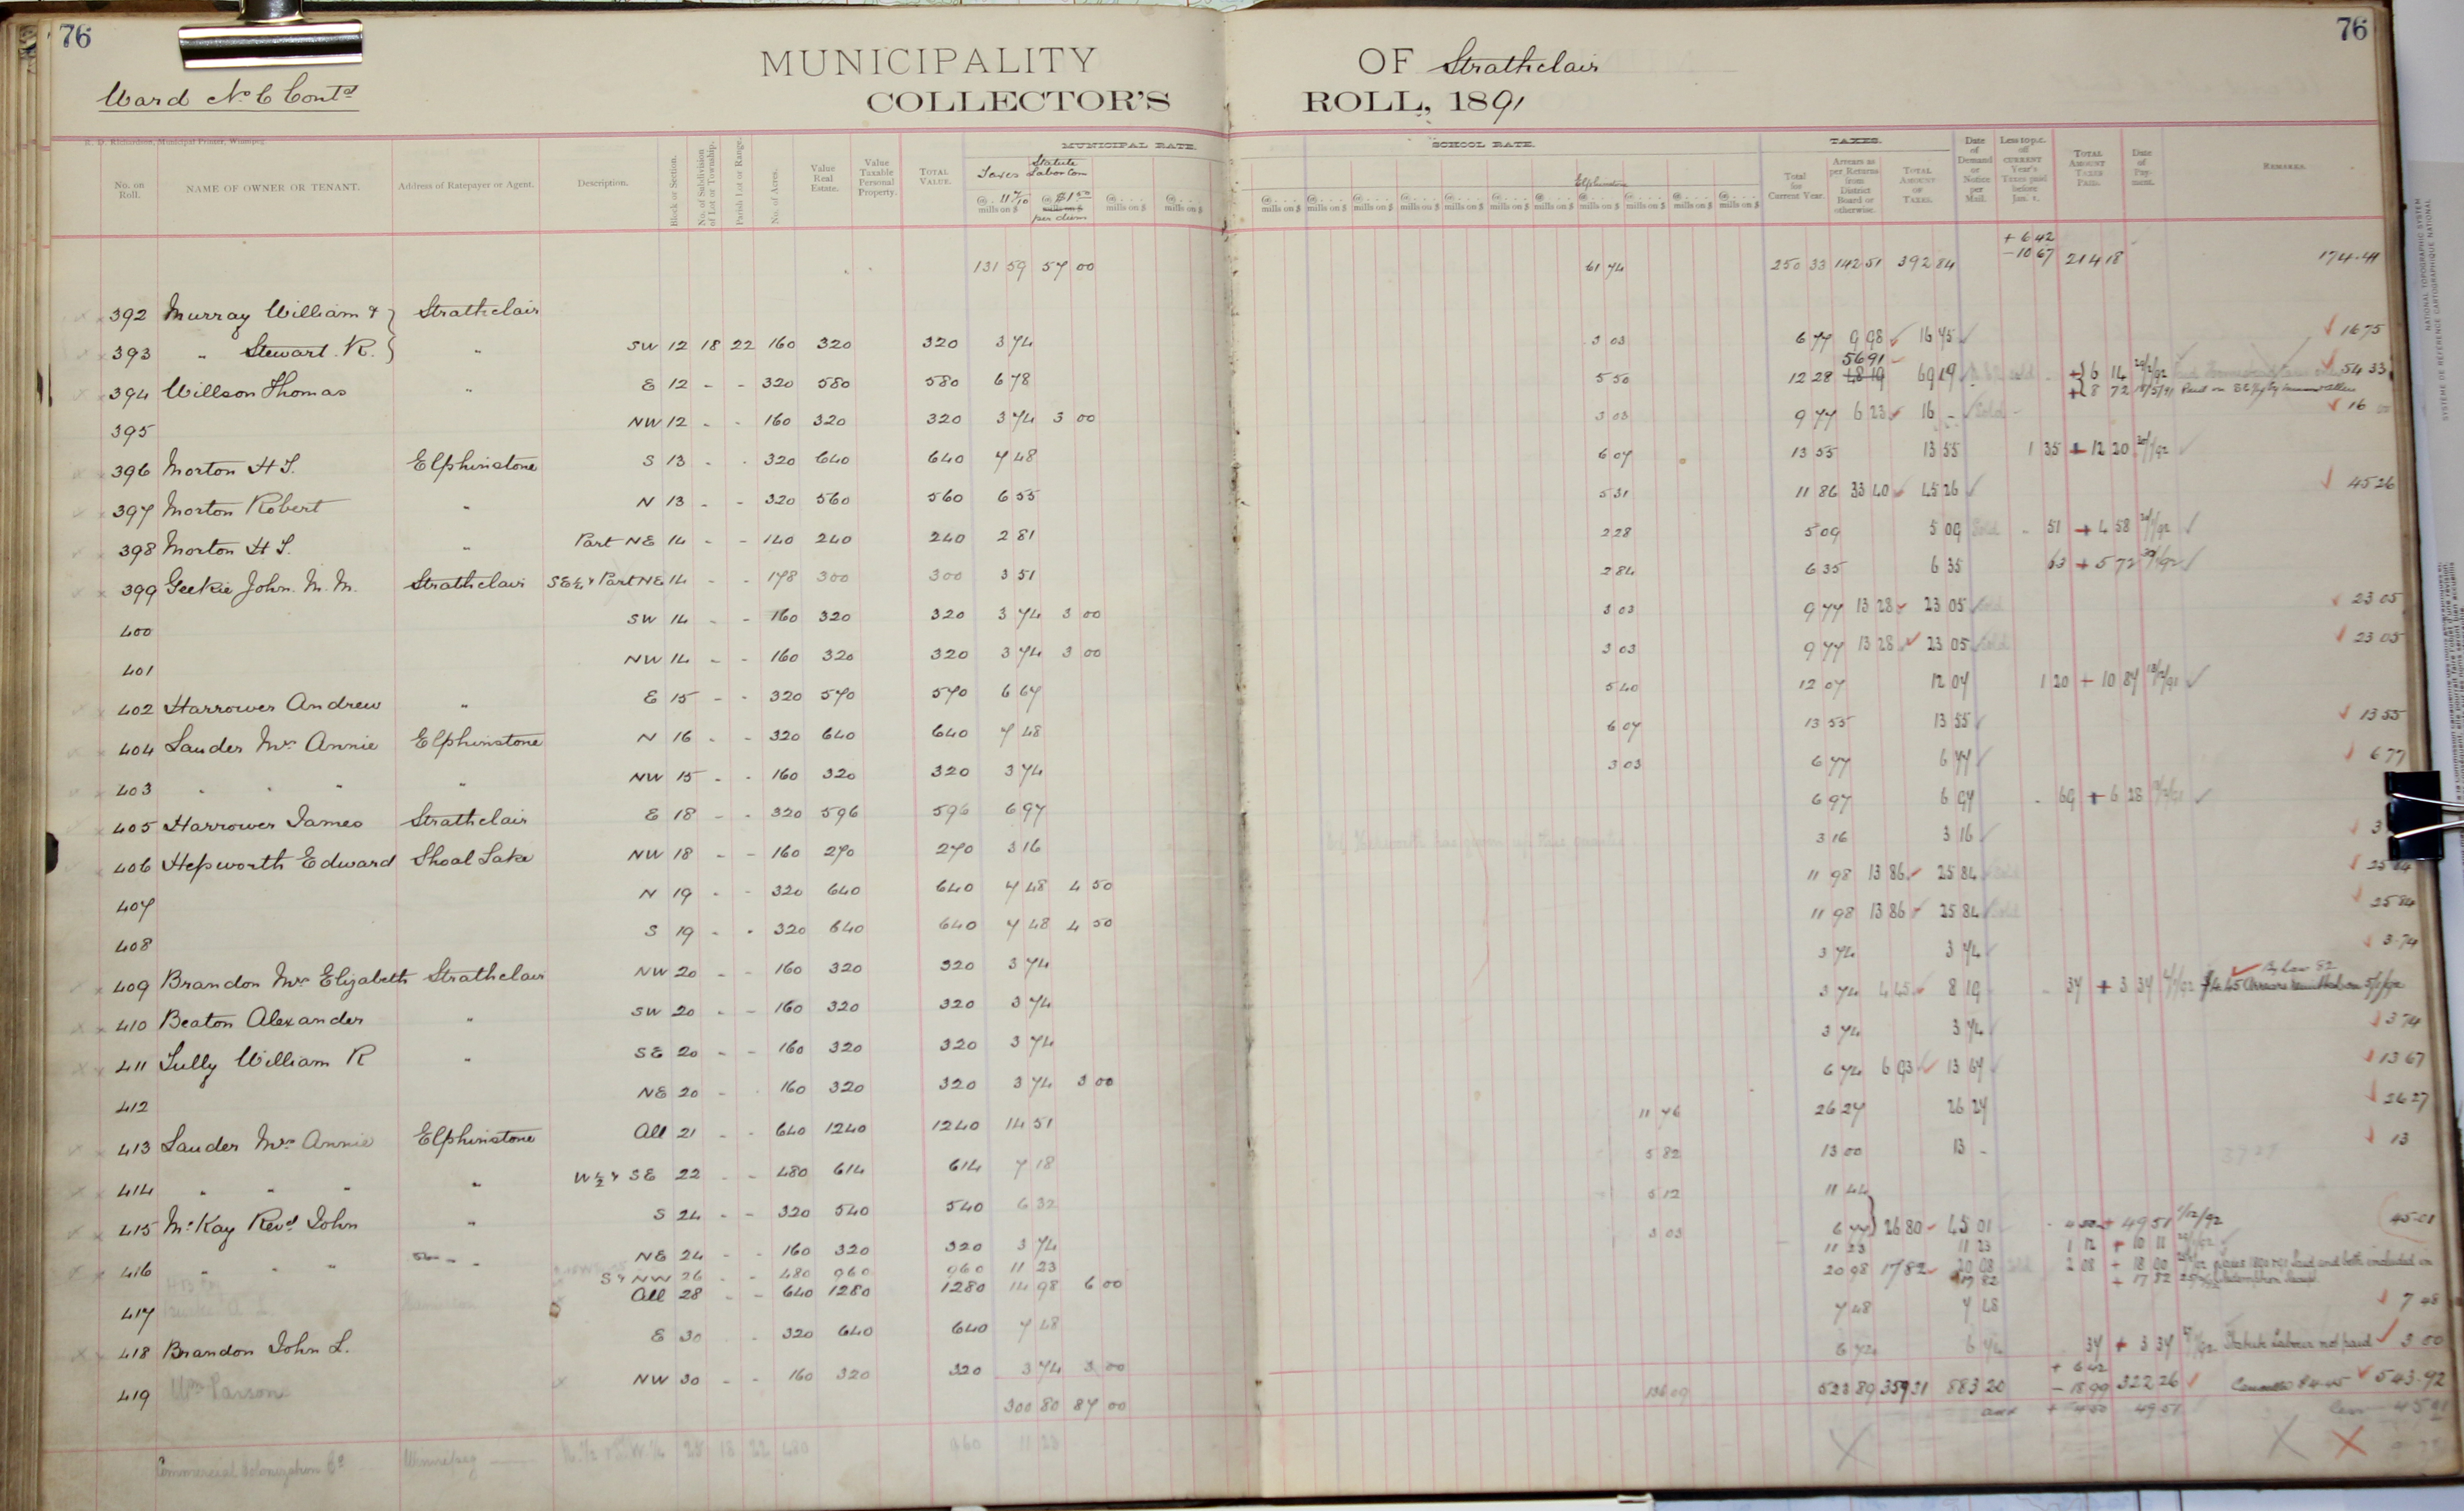 76
76
MUNICIPALITY OF Strathclair
Ward No 6 Contd
COLLECTOR'S ROLL, 1891
R. D. Richardson, Municipal Printer, Winnipeg.
No. on Roll. NAME OF OWNER OR TENANT. Address of Ratepayer or Agent. Description. Block or Section. No. of Subdivision of Lot or Township. Parish Lot or Range. No. of Acres. Value Real Estate. Value Taxable Personal Property. TOTAL VALUE. MUNICIPAL RATE. Taxes @ 11 7/10 mills on $ Statute Labor Com @ $1.50 mills on $ per diem @ mills on $ @ mills on $ SCHOOL RATE. Elphinstone TAXES. Total for Current Year. Arrears as per Returns from District Board or otherwise. TOTAL AMOUNT OF TAXES. Date of Demand or Notice per Mail. Less 10 p.c. off CURRENT Year's Taxes paid before Jan. 1. TOTAL AMOUNT TAXES PAID. Date of Payment. REMARKS.
131 59 57 00 61 74 250 33 142 51 392 84 + 6 42 - 10 67 214 18 174.41
392 Murray William & Strathclair
393 " Stewart R. " SW 12 18 22 160 320 320 3 74 3 03 6 77 9 98 16 75 16 75
394 Willson Thomas " E 12 - - 320 580 580 6 78 5 50 12 28 56 91 48 19 69 19 + 6 14 + 8 72 54 33
395 NW 12 - - 160 320 320 3 74 3 00 3 03 9 77 6 23 16 - Sold 16 00
396 Morton H S. Elphinstone S 13 - - 320 640 640 7 48 6 07 13 55 13 55 1 35 + 12 20
397 Morton Robert " N 13 - - 320 560 560 6 55 5 31 11 86 33 40 45 26 45 26
398 Morton H S. " Part NE 14 - - 140 240 240 2 81 2 28 5 09 5 09 Sold 51 + 4 58
399 Geekie John. M. M. Strathclair SE¼ & Part NE 14 - - 178 300 300 3 51 2 84 6 35 6 35 63 + 5 72
400 SW 14 - - 160 320 320 3 74 3 00 3 03 9 77 13 28 23 05 Sold 23 05
401 NW 14 - - 160 320 320 3 74 3 00 3 03 9 77 13 28 23 05 Sold 23 05
402 Harrower Andrew " E 15 - - 320 570 570 6 67 5 40 12 07 12 07 1 20 + 10 87
404 Lauder Mrs Annie Elphinstone N 16 - - 320 640 640 7 48 6 07 13 55 13 55 13 55
403 " " " " NW 15 - - 160 320 320 3 74 3 03 6 77 6 77 6 77
405 Harrower James Strathclair E 18 - - 320 596 596 6 97 6 97 6 97 69 + 6 28
406 Hepworth Edward Shoal Lake NW 18 - - 160 270 270 3 16 3 16 3 16 3
407 N 19 - - 320 640 640 7 48 4 50 11 98 13 86 25 84 Sold 25 84
408 S 19 - - 320 640 640 7 48 4 50 11 98 13 86 25 84 Sold 25 84
409 Brandon Mrs Elizabeth Strathclair NW 20 - - 160 320 320 3 74 3 74 3 74 3.74
410 Beaton Alexander " SW 20 - - 160 320 320 3 74 3 74 4 45 8 19 37 + 3 37 By law 82 $4.45 Arrears
411 Tully William R " SE 20 - - 160 320 320 3 74 3 74 3 74 3 74
412 NE 20 - - 160 320 320 3 74 3 00 6 74 6 93 13 67 13 67
413 Lauder Mrs Annie Elphinstone All 21 - - 640 1240 1240 14 51 11 76 26 27 26 27 26 27
414 " " " " W½ & SE 22 - - 480 614 614 7 18 5 82 13 00 13 - 13
415 McKay Revd John " S 24 - - 320 540 540 6 32 5 12 11 44
416 " " " NE 24 - - 160 320 320 3 74 3 03 6 77 26 80 45 01 + 49 51 45.01
S & NW 26 - - 480 960 960 11 23 11 23 11 23 1 12 + 10 11
417 All 28 - - 640 1280 1280 14 98 6 00 20 98 17 82 2 08 + 18 90
17 82 + 17 82
418 Brandon John L. E 30 - 320 640 640 7 48 7 48 7 48 7 48
419 Wm Parson NW 30 - - 160 320 320 3 74 3 00 6 74 6 74 37 + 3 37 Statute Labour not paid 3 00
300 80 87 00 136 09 523 89 359 31 883 20 + 6 42 - 18 99 322 26 Cancelled $4.45 543.92
49 51 less 45 01
Commercial Colonization Co Winnipeg 25 18 22 480 960 11 23